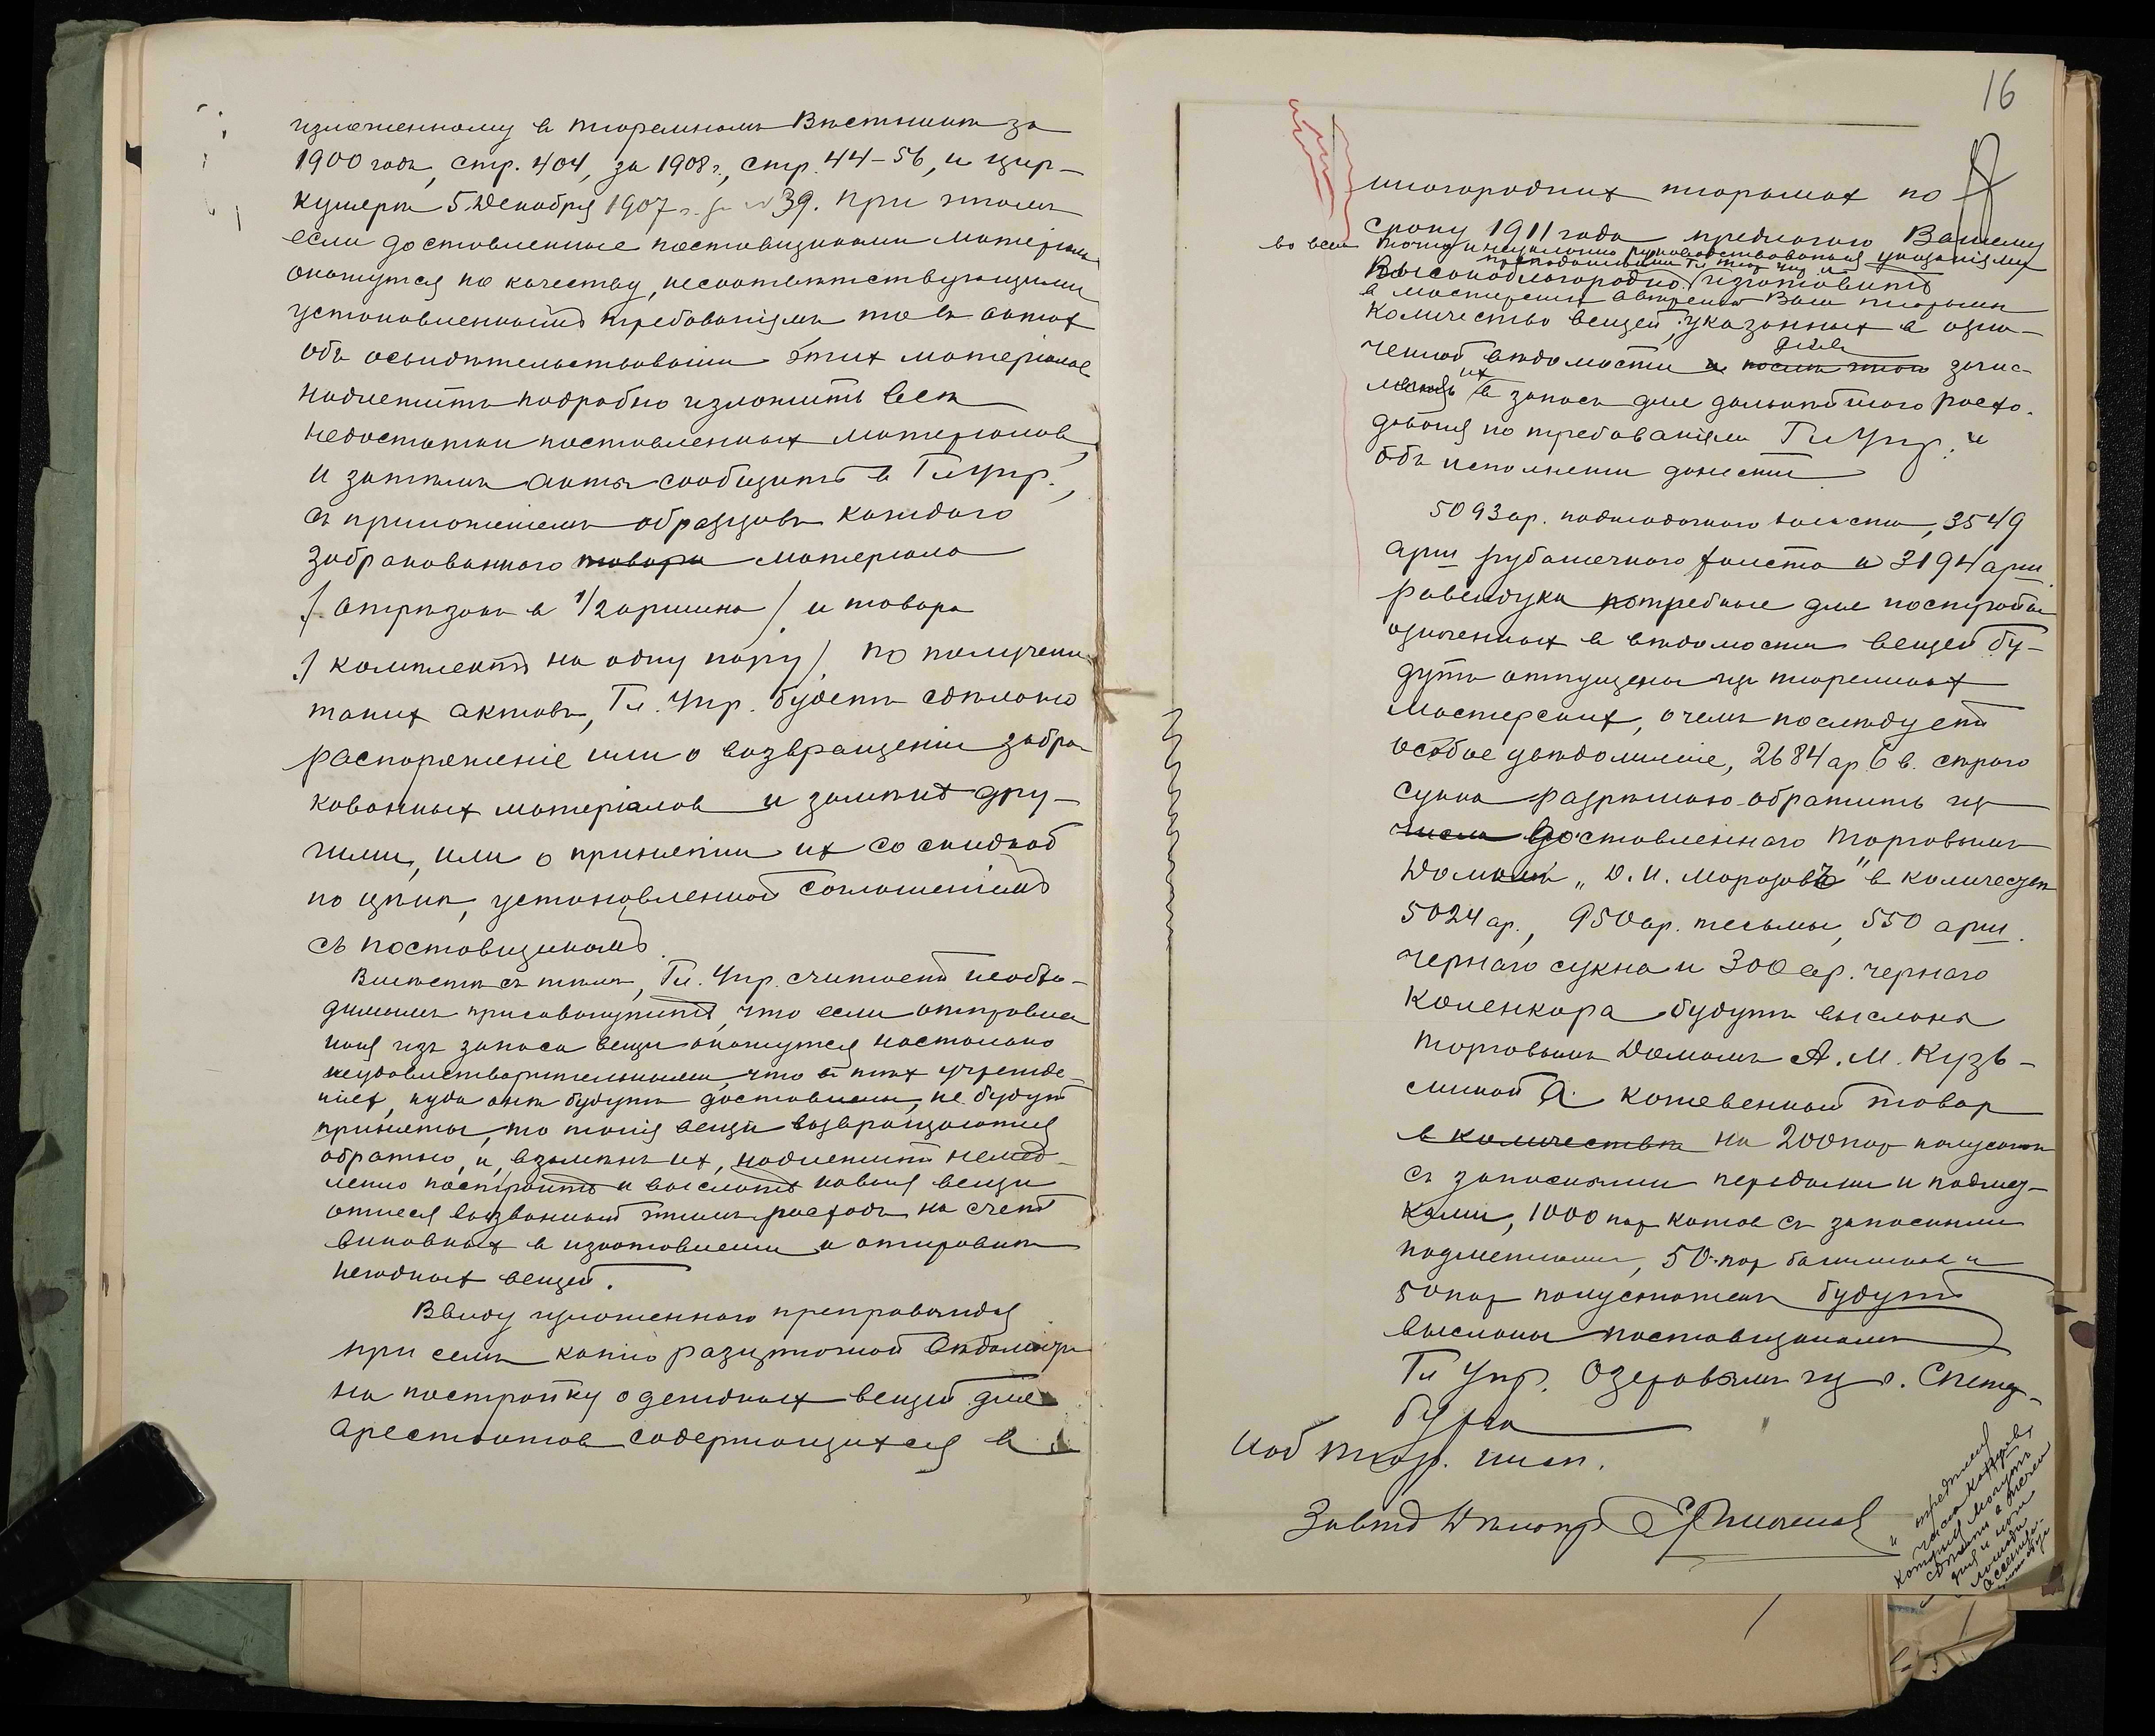 изложенному в тюремномъ Вѣстникѣ за
1900 годъ, стр. 404, за 1908 г., стр. 44-56, и цир-
кулярѣ 5 Декабря 1907 г. за № 39. При этомъ
если доставленные поставщиками матеріалы
окажутся по качеству, несоотвѣтствующими
установленнымъ требованіямъ то въ актах
объ освидѣтельствованіи этих матеріалов
надлежитъ подробно изложить всѣ
недостатки поставленных матеріалов,
и затѣмъ акты сообщить в Гл. Упр.,
съ приложеніемъ образцовъ каждого
забракованного товара матеріала
/ отрѣзокъ в 1/2 аршина / и товара
/ комплектъ на одну пару /. По полученіи
таких актовъ, Гл. Упр. будетъ сдѣлано
распоряженіе или о возвращеніи забра-
кованных матеріалов и замѣнѣ дру-
гими, или о принятіи их со скидкой
по цѣнѣ, установленной соглашеніемъ
съ поставщикомъ.
Вмѣстѣ съ тѣмъ, Гл. Упр. считаетъ необхо-
димымъ присовокупить, что если отправлен-
ныя изъ запаса вещи окажутся настолько
неудовлетворительными, что в тѣх учрежде-
ніях, куда онѣ будутъ доставлены, не будут
приняты, то такія вещи возвращаются
обратно, и, взамѣнъ их, надлежитъ немед-
ленно построить и выслать новыя вещи
отнеся вызванный этимъ расходъ на счетъ
виновных в изготовленіи и отправкѣ
негодных вещей.
Ввиду изложенного препровождая
при семъ копію разцѣночной вѣдомости
на постройку одежных вещей для
арестантов содержащихся в
16
иногородних тюрьмах по
сроку 1911 года предлагаю Вашему
во всем точно и неуклонно руководствоваться указаніями
преподанными Гл. Тюр. Упр. и
Высокоблагородію изготовить
в мастерских ввѣренной Вам тюрьмы
количество вещей, указанных в озна-
ченной вѣдомости и послѣ этого зачис-
лить их в запасъ для дальнѣйшаго расхо-
дованія по требованіямъ Гл. Упр. и
объ исполненіи донести
5093 ар. подкладочного холста, 3549
арш. рубашечного холста и 3194 арш.
равендука потребные для постройки
означенных в вѣдомости вещей бу-
дутъ отпущены изъ тюремных
мастерских, о чемъ послѣдуетъ
особое увѣдомленіе, 2684 ар. 6 в. сѣраго
сукна разрѣшаю обратить изъ
числа доставленнаго Торговымъ
Домомъ „Д. И. Морозовъ" в количествѣ
5024 ар., 950 ар. тесьмы, 550 арш.
чернаго сукна и 300 ар. чернаго
коленкора будутъ высланы
Торговымъ Домомъ А. М. Кузь-
миной а кожевенный товар
в количествѣ на 200 пар полусапог
съ запасными передами и подмет-
ками, 1000 пар котов съ запасными
подметками, 50 пар башмаков и
50 пар полусапожек будутъ
высланы поставщикомъ
Гл. Упр. Озеровымъ изъ г. С. Петер-
бурга
Под. Тюр. Инсп.
Завѣд. Дѣлопр.